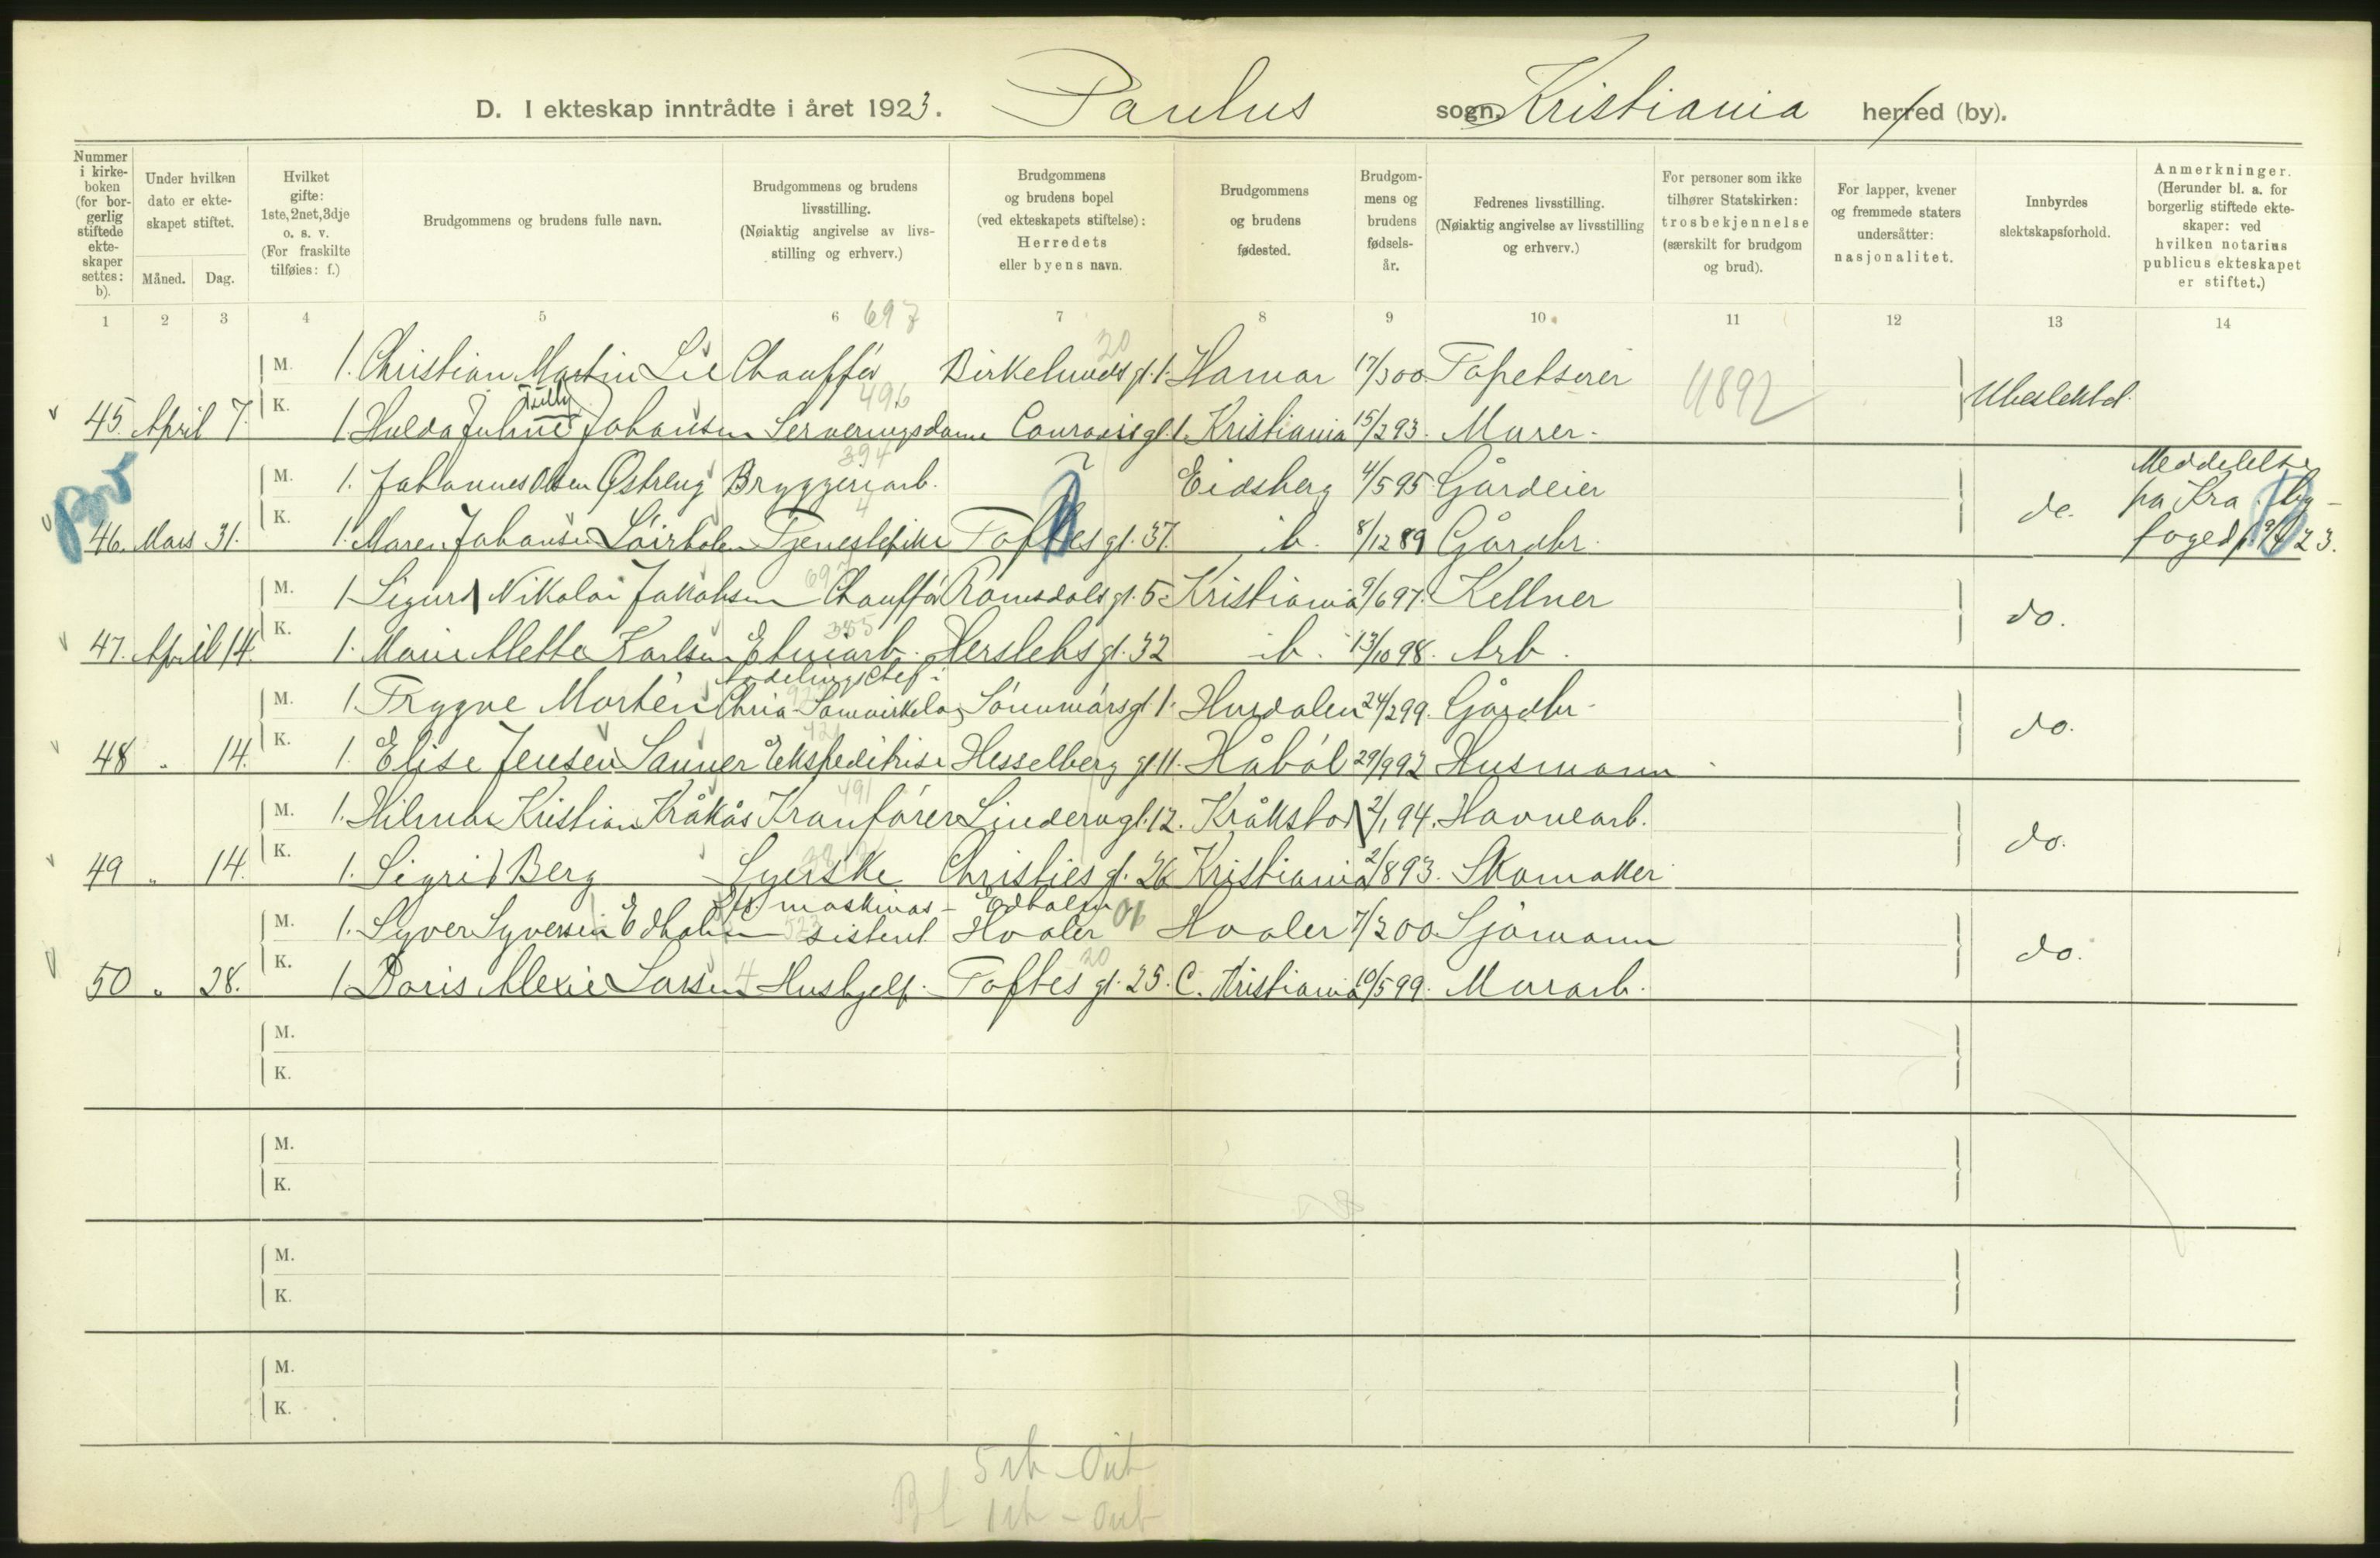 D. I ekteskap inntrådte i året 1923. Paulus sogn. Kristiania herred (by).
Nummer i kirkeboken (for borgerlig stiftede ekteskaper settes: b).
Under hvilken dato er ekteskapet stiftet.
Måned. Dag.
Hvilket gifte: 1ste, 2net, 3dje o. s. v. (For fraskilte tilføies: f.)
Brudgommens og brudens fulle navn.
Brudgommens og brudens livsstilling. (Nøiaktig angivelse av livsstilling og erhverv.)
Brudgommens og brudens bopel (ved ekteskapets stiftelse): Herredets eller byens navn.
Brudgommens og brudens fødested.
Brudgommens og brudens fødselsår.
Fedrenes livsstilling. (Nøiaktig angivelse av livsstilling og erhverv.)
For personer som ikke tilhører Statskirken: trosbekjennelse (særskilt for brudgom og brud).
For lapper, kvener og fremmede staters undersåtter: nasjonalitet.
Innbyrdes slektskapsforhold.
Anmerkninger. (Herunder bl. a. for borgerlig stiftede ekteskaper: ved hvilken notarius publicus ekteskapet er stiftet.)
1 2 3 4 5 6 7 8 9 10 11 12 13 14
697 20
M. 1. Christian Martin Lie Chauffør Birkelunds gt. 1. Hamar 17/3 00 Tapetserer 4892
Tilly 496
45. April 7. K. 1. Hulda Johansen Serveringsdame Conradis gt. 1. Kristiania 15/2 93. Murer. Ubeslektet.
394
M. 1. Johannes Olsen Østreng Bryggeriarb. Eidsberg 4/5 95 Gårdeier Meddelelse
4
46. Mars 31. K. 1. Maren Johansen Tjenestepike Toftes gt. 37. ib. 8/12 89 Gårdbr. do. fra Kra. by-
foged 23.
697
M. 1 Sigurd Nikolai Jakobsen Chauffør Romsdals gt. 5. Kristiania 9/6 97. Kellner
355
47. April 14. K. 1. Marie Mette Karlsen Etuiarb. Herslebs gt. 32 ib. 13/10 98. Arb. do.
Avdelingschef i
M. 1. Trygve Mortén Chria Samvirkelag Sønnmørsgt. 1. Hurdalen 24/2 99. Gårdbr.
48 " 14. K. 1. Elise Jensen Sanner Ekspeditrise Hesselberg gt 11. Håbøl 29/9 92 Husmann do.
491
M. 1. Hilmar Kristian Kråkås Kranfører Linderngt. 12. Kråkstad 2/1 94. Havnearb.
49 " 14. K. 1. Sigrid Berg Syerske Christies gt. 26 Kristiania 2/8 93. Skomaker do.
maskinas- Edholm
M. 1. Syver Syversen Edholm 523 sistent Hvaler 01 Hvaler 7/2 00 Sjømann
20
50 " 28. K. 1. Doris Alexie Larsen 4 Hushjelp. Toftes gt. 25. C. Kristiania 10/5 99. Murarb. do.
M.
K.
M.
K.
M.
K.
M.
K.